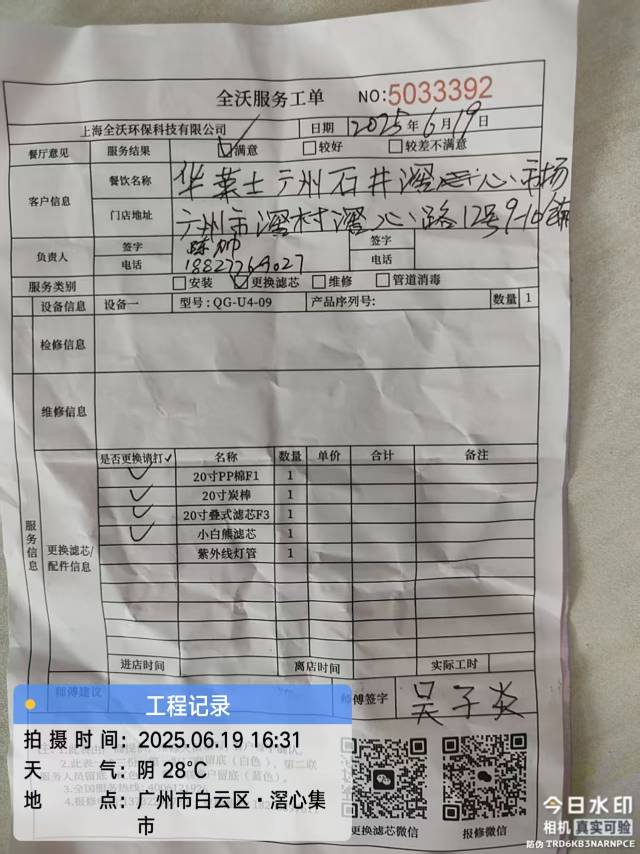 全沃服务工单 NO:5033392
上海全沃环保科技有限公司 日期 2025年6月19日
餐厅意见 服务结果 满意 较好 较差不满意
客户信息 餐饮名称 华莱士广州石井滘心市场
门店地址 广州市滘村滘心路12号9-10铺
负责人 签字 签字
电话 18827769027 电话
服务类别 安装 更换滤芯 维修 管道消毒
设备信息 设备一 型号:QG-U4-09 产品序列号: 数量 1
检修信息
维修信息
服务信息
更换滤芯/配件信息
是否更换请打✓ 名称 数量 单价 合计 备注
✓ 20寸PP棉F1 1
✓ 20寸炭棒 1
✓ 20寸叠式滤芯F3 1
✓ 小白熊滤芯 1
紫外线灯管 1
进店时间 离店时间 实际工时
师傅建议 师傅签字 吴子炎
更换滤芯微信 报修微信
工程记录
拍摄时间: 2025.06.19 16:31
天气: 阴 28°C
地点: 广州市白云区·滘心集市
今日水印
相机 真实可验
防伪 TRD6KB3NARNPCE